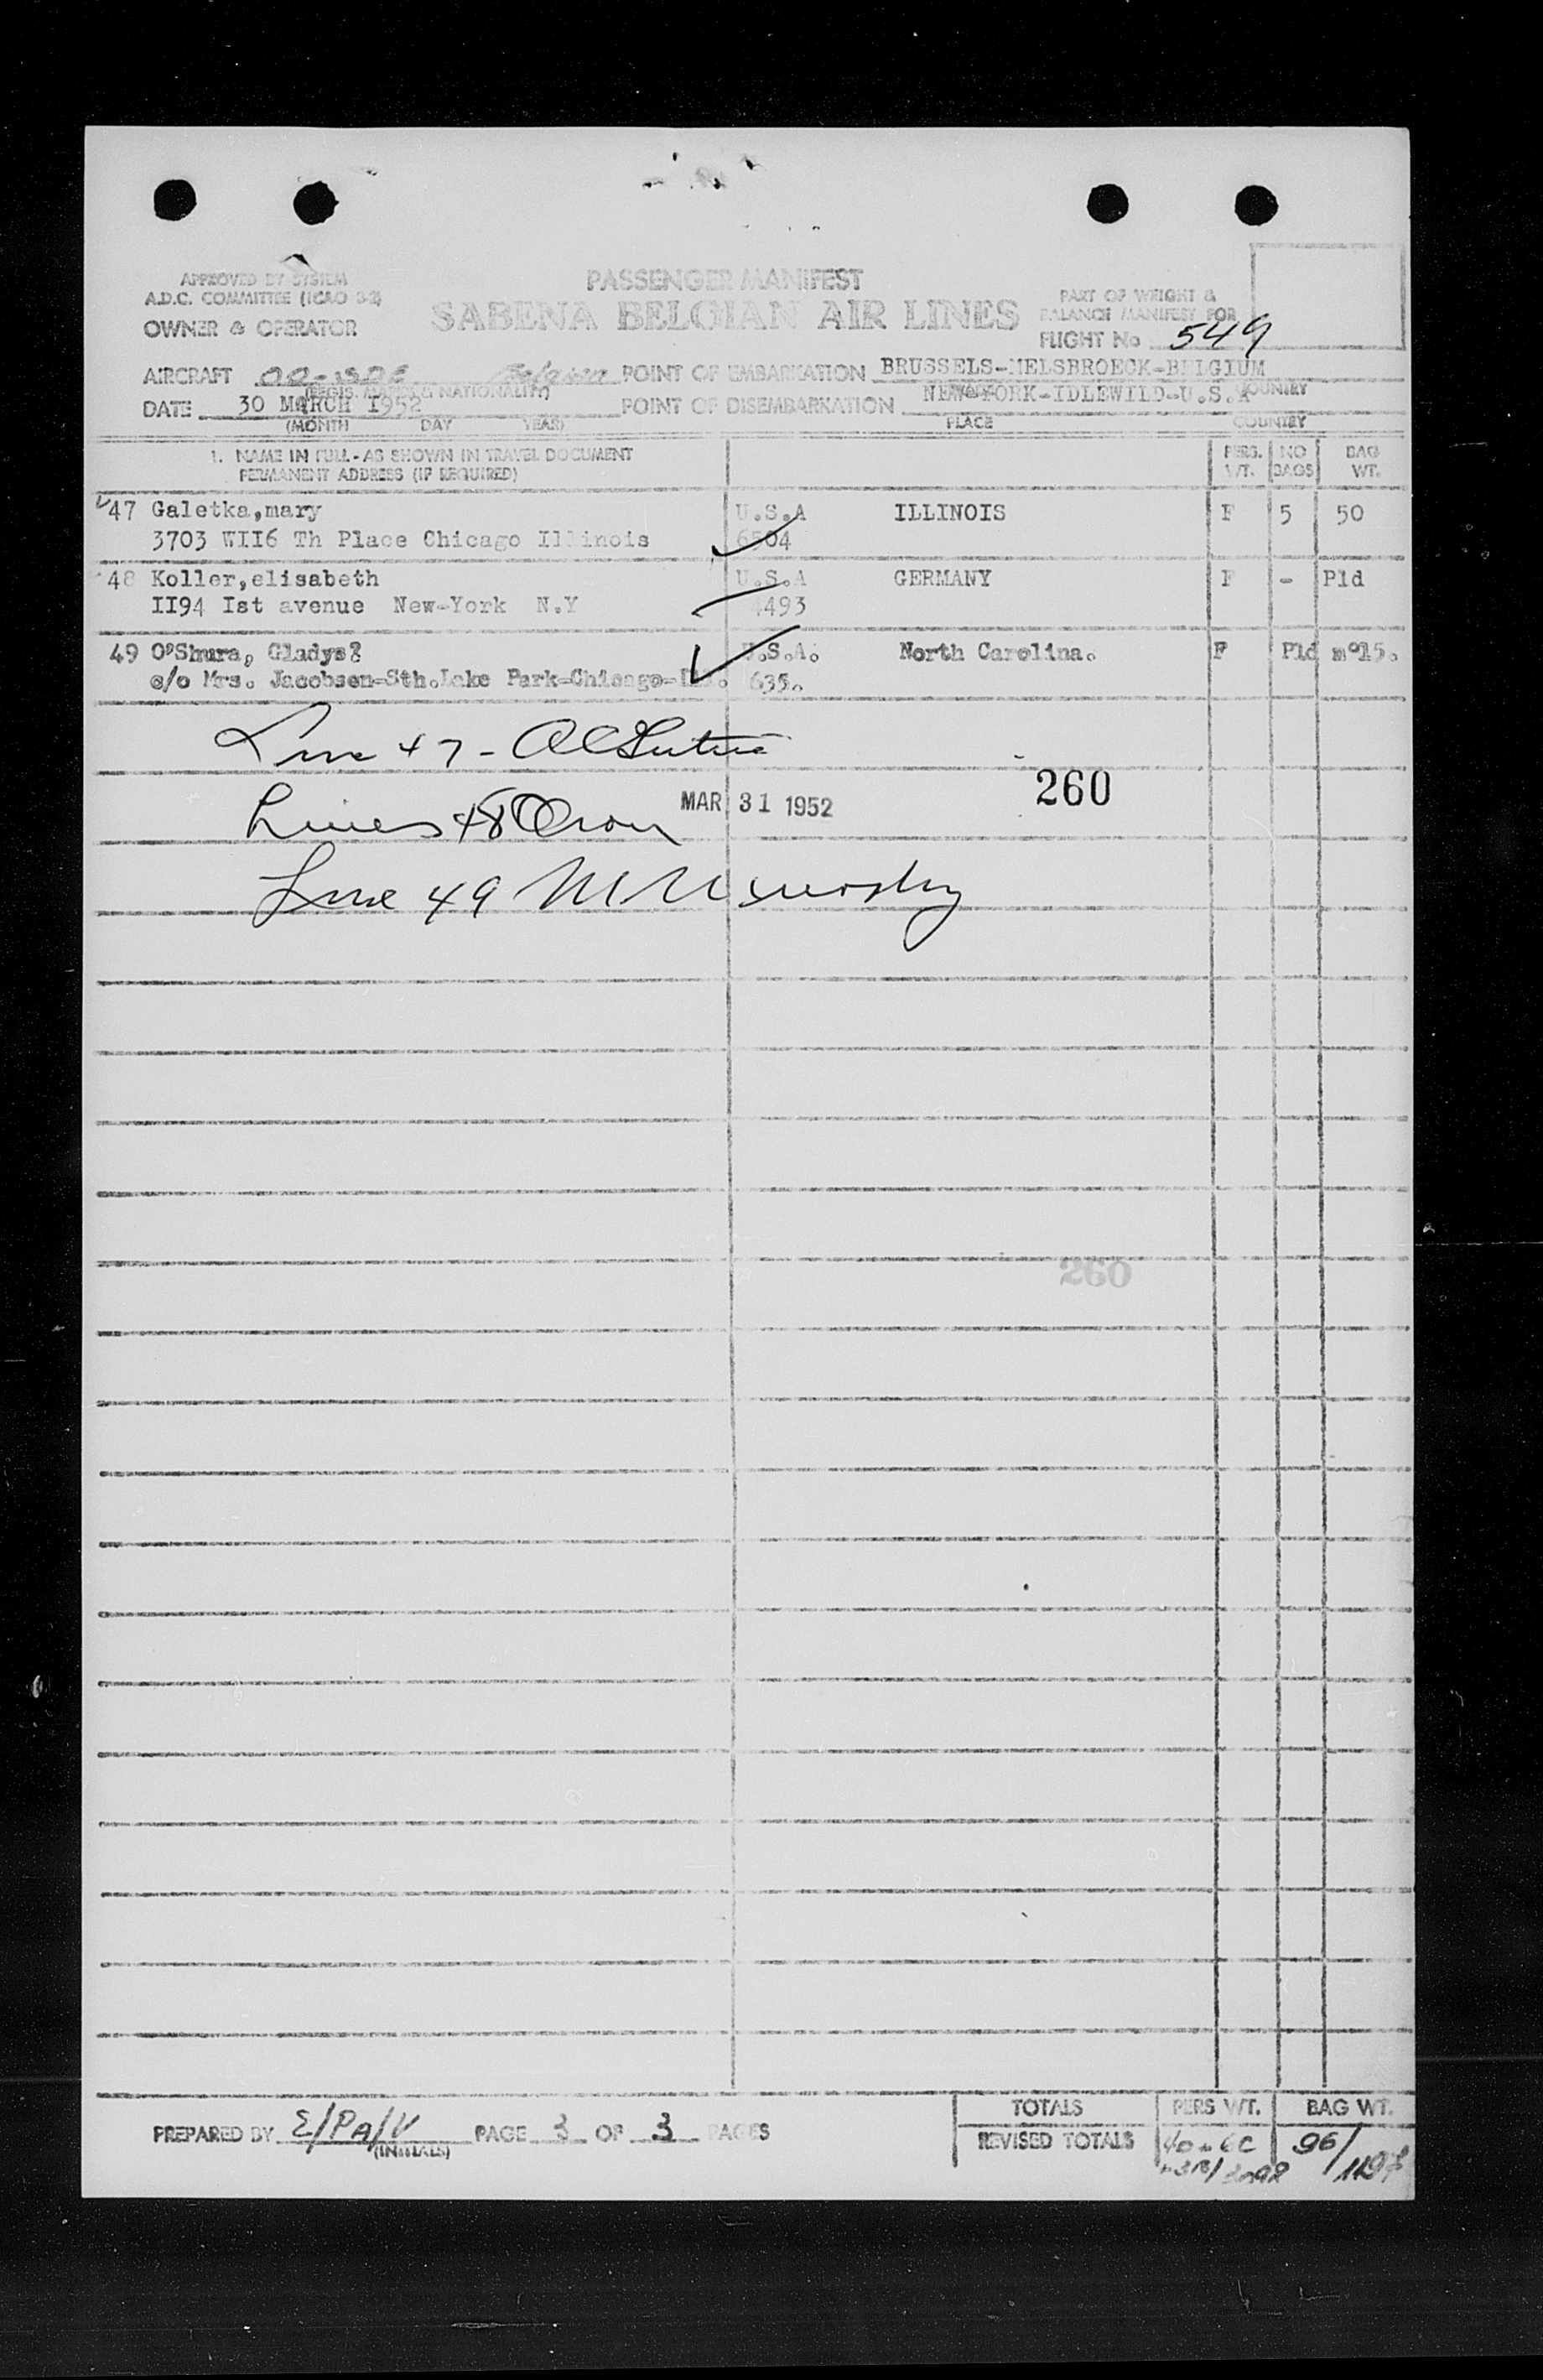 APPROVED BY SYSTEM
A.D.C. COMMITTEE (ICAO 3-2)
OWNER & OPERATOR
PASSENGER MANIFEST
SABENA BELGIAN AIR LINES
PART OF WEIGHT &
BALANCE MANIFEST FOR
FLIGHT No 549
AIRCRAFT Belgian POINT OF EMBARKATION BRUSSELS-MELSBROECK-BELGIUM
(REGIS. & NATIONALITY) COUNTRY
DATE 30 MARCH 1952 POINT OF DISEMBARKATION NEW-YORK-IDLEWILD-U.S.A
(MONTH DAY YEAR) PLACE COUNTRY
1. NAME IN FULL - AS SHOWN IN TRAVEL DOCUMENT PERS. NO BAG
PERMANENT ADDRESS (IF REQUIRED) WT. BAGS WT.
47 Galetka,mary U.S.A ILLINOIS F 5 50
3703 WII6 Th Place Chicago Illinois 6504
48 Koller,elisabeth U.S.A GERMANY F - Pld
II94 Ist avenue New-York N.Y 4493
49 O'Shura, Gladys U.S.A. North Carolina. F Pld m°15.
c/o Mrs. Jacobsen-Sth.Lake Park-Chicago- 635.
Line 47 -
260
MAR 31 1952
Lines 48
Line 49
260
TOTALS PERS WT. BAG WT.
PREPARED BY E/PA/V PAGE 3 OF 3 PAGES REVISED TOTALS 96/
(INITIALS)